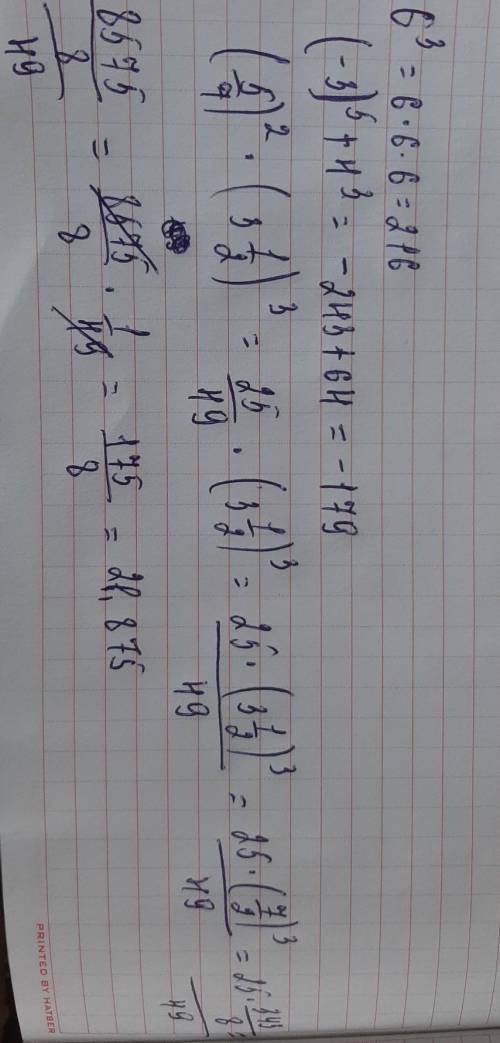 6³ = 6 · 6 · 6 = 216
(-3)⁵ + 4³ = - 243 + 64 = - 179
(5/7)² · (3 1/2)³ = 25/49 · (3 1/2)³ = (25 · (3 1/2)³)/49 = (25 · (7/2)³)/49 = (25 · 343/8)/49 =
(8575/8)/49 = 8575/8 · 1/49 = 175/8 = 21,875
PRINTED BY HATBER